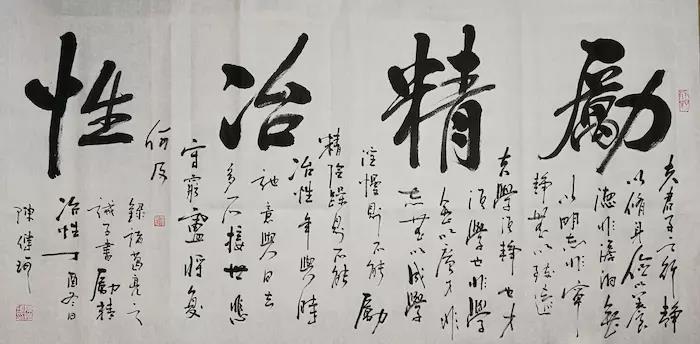 勵精冶性
夫君子之行靜
以脩身儉以養
德非澹泊無
以明志非寧
靜無以致遠
夫學須靜也才
須學也非學
無以廣才非
志無以成學
淫慢則不能勵
精險躁則不能
冶性年與時
馳意與日去
多不接世悲
守窮廬將復
何及
錄諸葛亮之
誡子書勵精
冶性丁酉冬日
陳